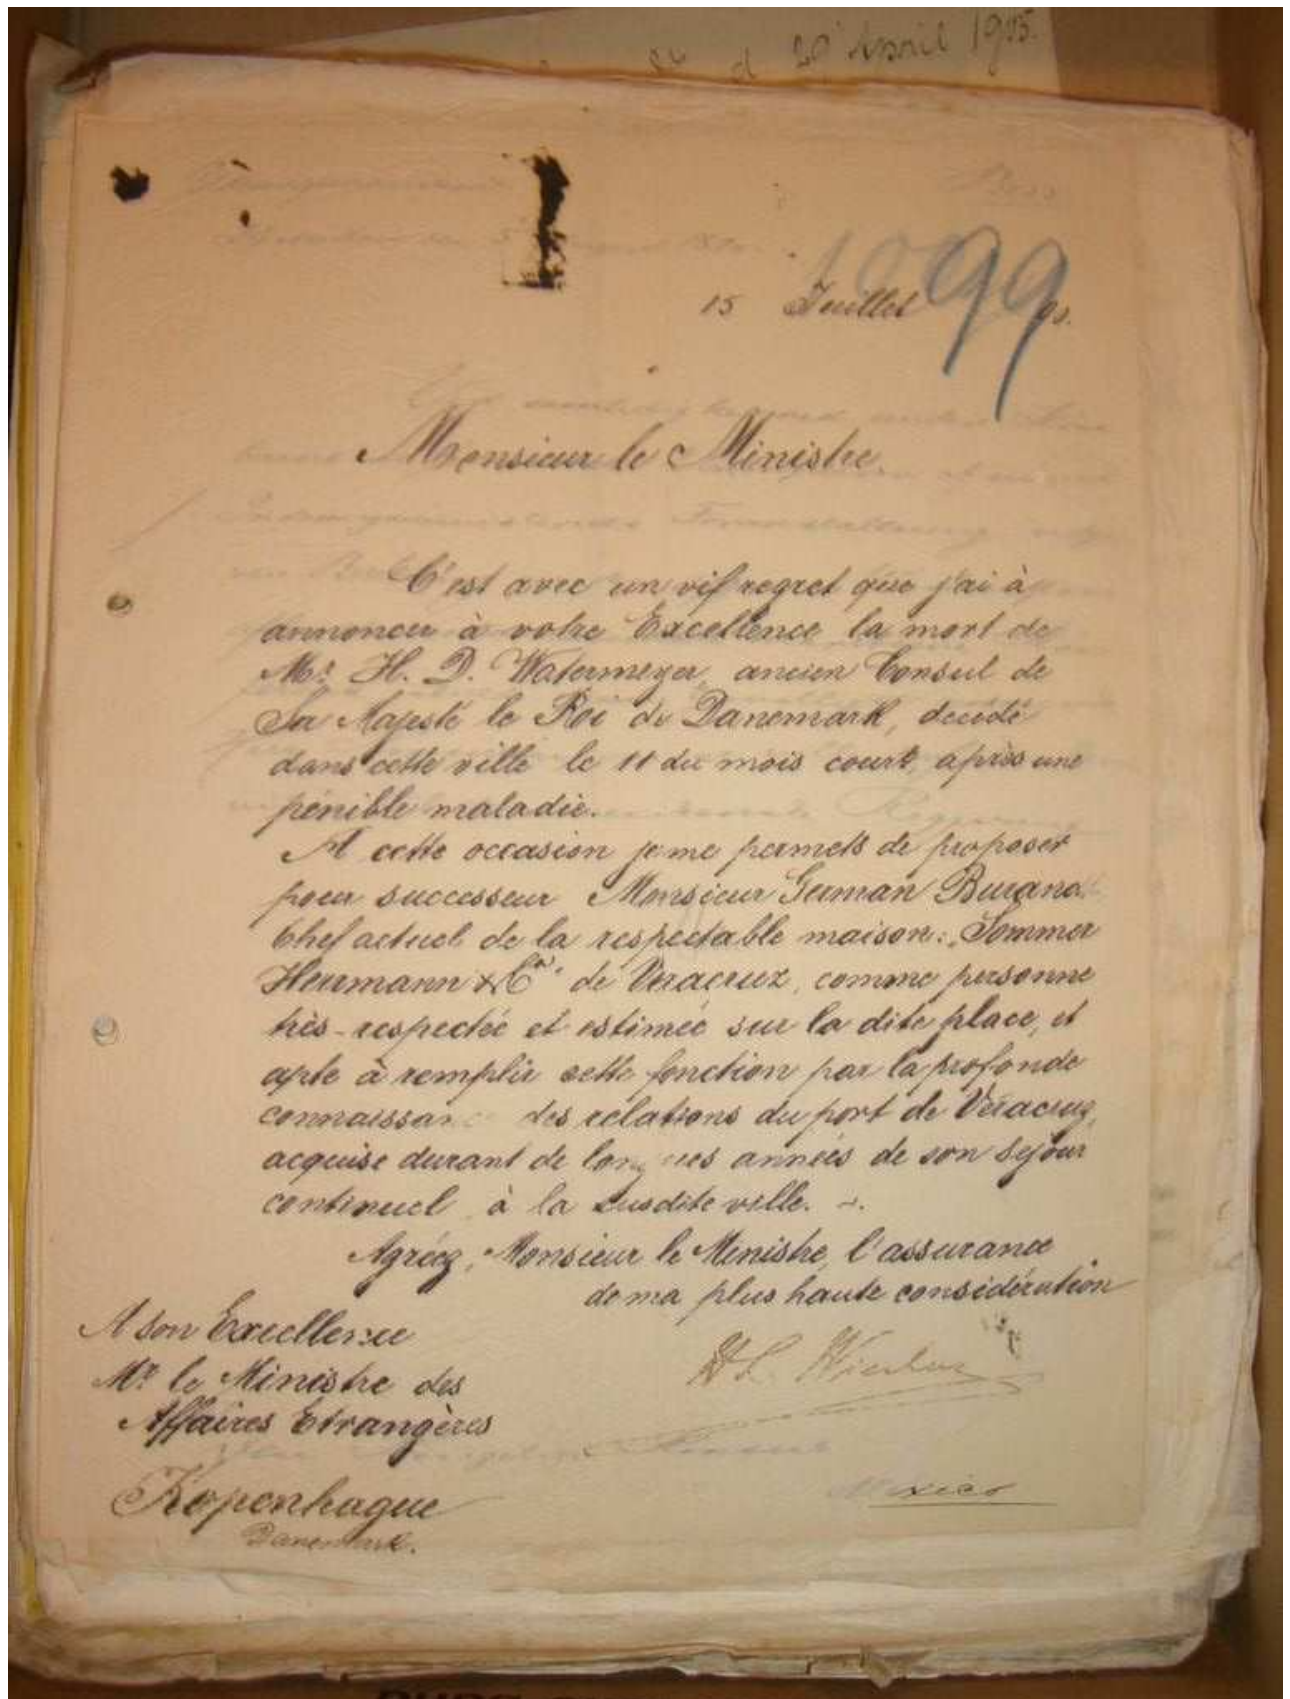 20 Avril 1905.
15 Juillet
99
Monsieur le Ministre.
C'est avec un vif regret que j'ai à
annoncer à votre Excellence la mort de
Mr. H. D. Watermeyer, ancien Consul de
Sa Majesté le Roi de Danemark, decidé
dans cette ville le 11 du mois court, après une
pénible maladie.
A cette occasion je me permets de proposer
pour successeur Monsieur German
Chef actuel de la respectable maison: Sommer
Herrmann & Ca. de Veracruz, comme personne
très-respectée et estimée sur la dite place, et
apte à remplir cette fonction par la profonde
des relations du port de Veracruz,
acquise durant de longues années de son séjour
continuel à la susdite ville. -.
Agréez, Monsieur le Ministre, l'assurance
de ma plus haute considération
A Son Excellence
Mr. le Ministre des
Affaires Etrangères
Kopenhague
Danemark.
Mexico